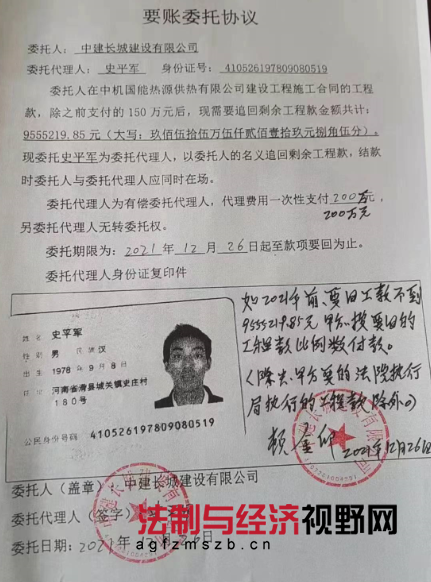 要账委托协议
委托人：中建长城建设有限公司
委托代理人：史平军 身份证号：410526197809080519
委托人在中机国能热源供热有限公司建设工程施工合同的工程
款，除之前支付的150万元后，现需要追回剩余工程款金额共计：
9555219.85元（大写：玖佰伍拾伍万伍仟贰佰壹拾玖元捌角伍分）。
现委托史平军为委托代理人，以委托人的名义追回剩余工程款，结款
时委托人与委托代理人应同时在场。
委托代理人为有偿委托代理人，代理费用一次性支付200万元，
200万元
另委托代理人无转委托权。
委托期限为：2021年12月26日起至款项要回为止。
委托代理人身份证复印件
姓名 史平军
性别 男 民族 汉
出生 1978年9月8日
住址 河南省滑县城关镇史庄村
180号
公民身份号码 410526197809080519
如2021年前，要回工款不到
9555219.85元，甲方按要回的
工程款比例数付款。
（除去甲方要的法院执行
局执行的工程款除外。）
2021年12月26日
委托人（盖章）：中建长城建设有限公司
委托代理人（签字）：
委托日期：2021年12月26日
法制与经济视野网
agfzmszb.cn